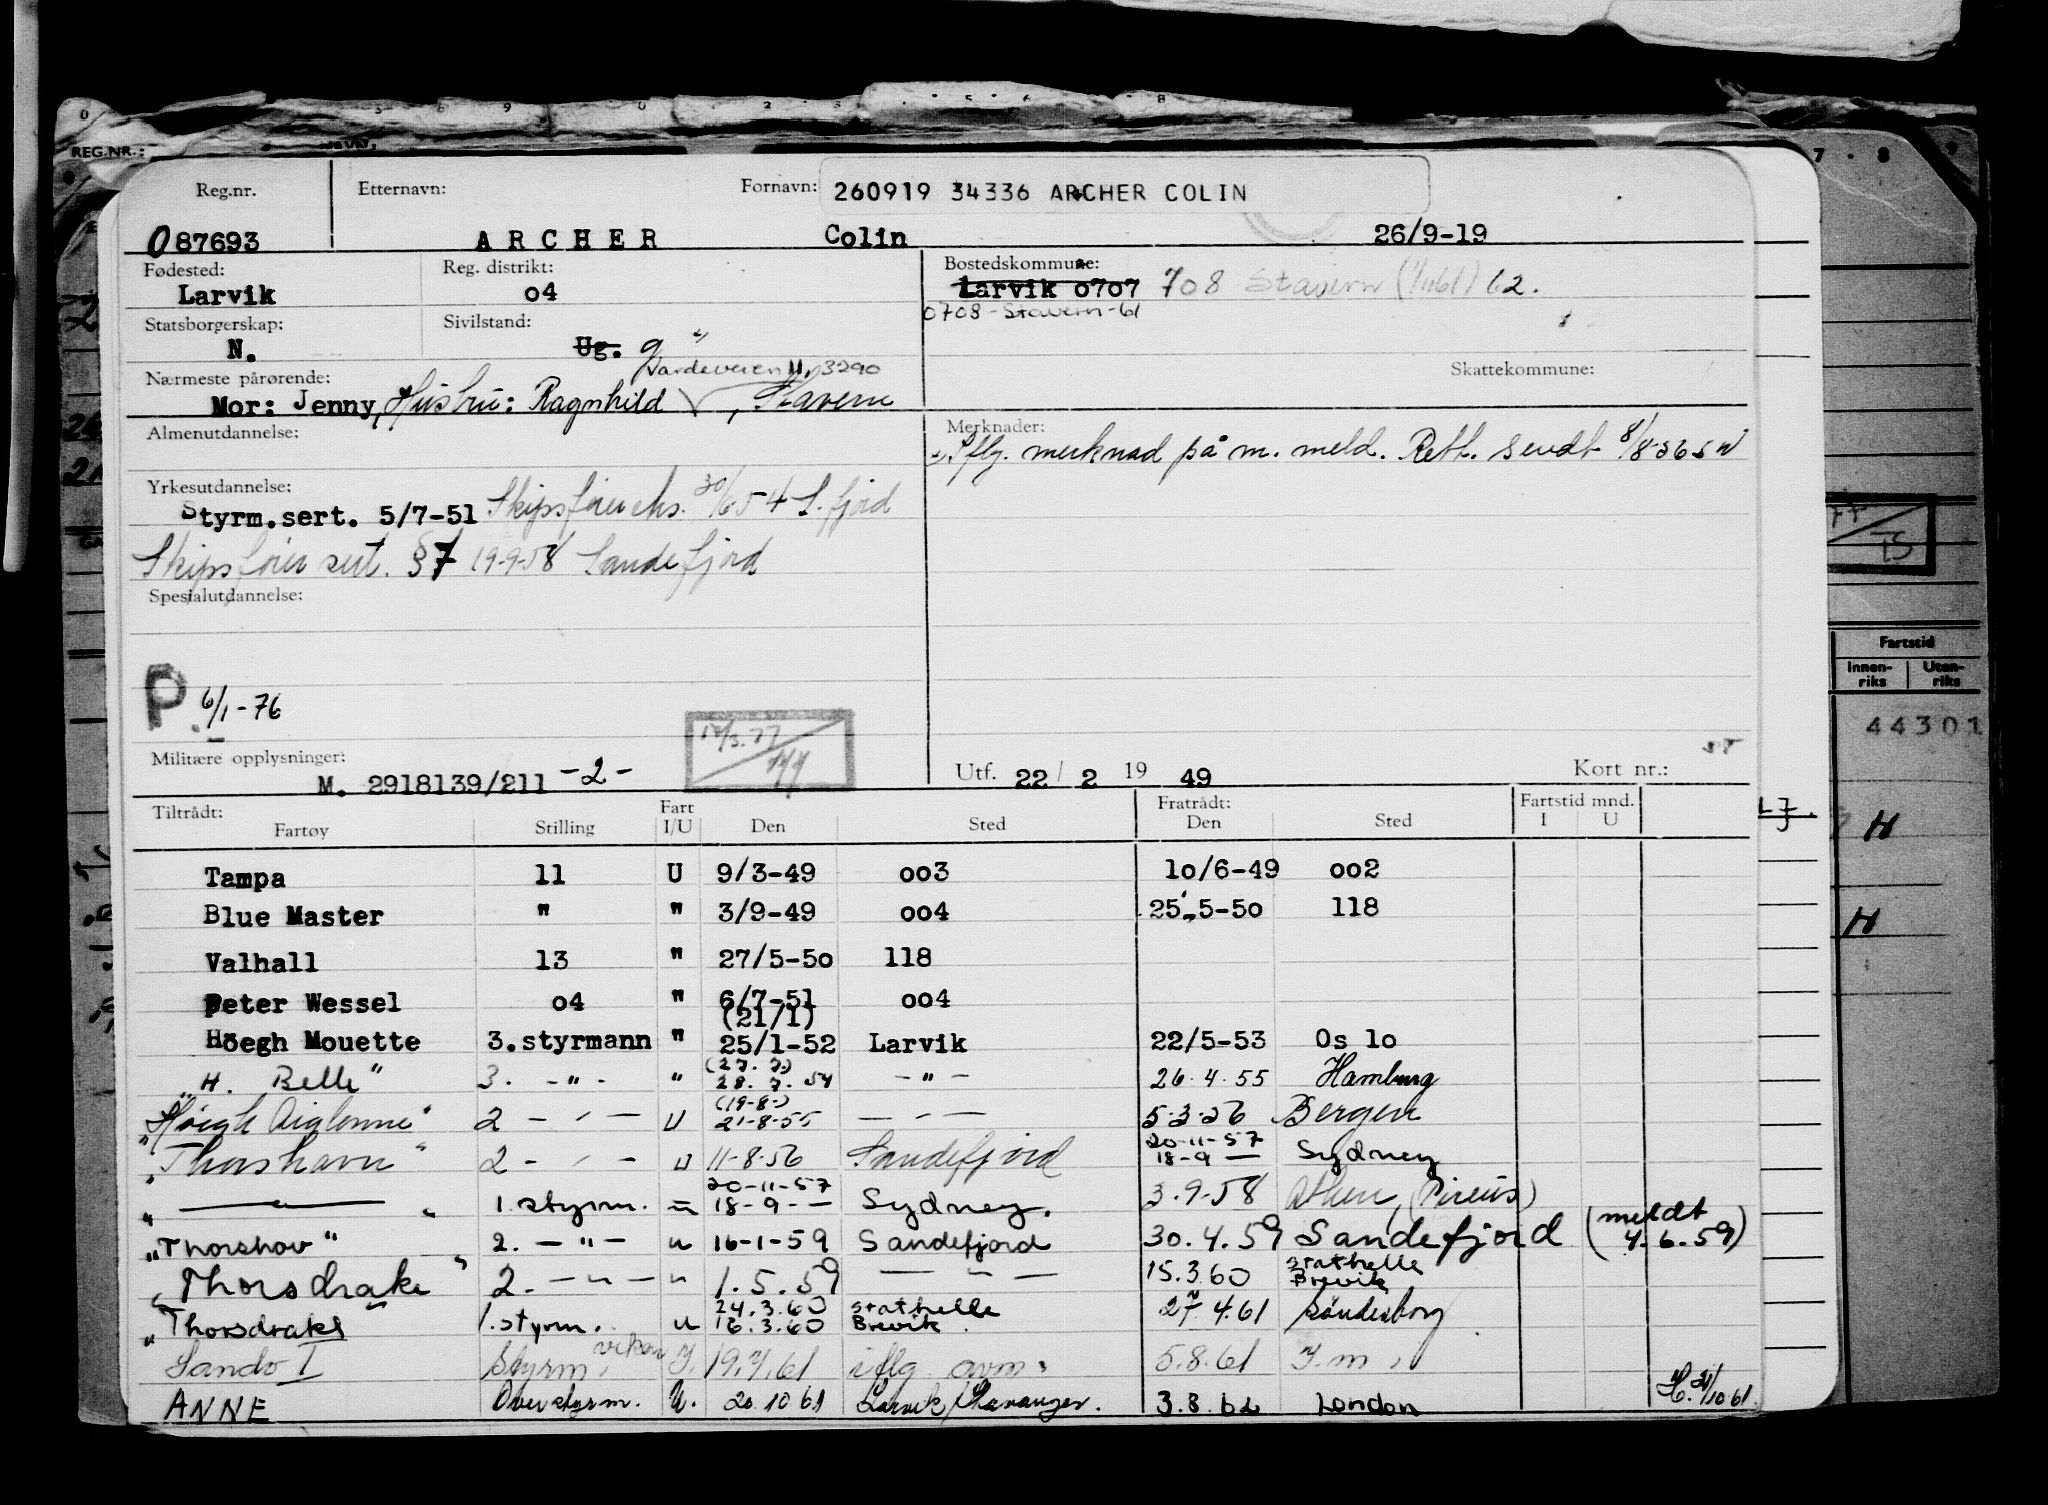 REG.NR.:
Reg.nr. Etternavn: Fornavn: 260919 34336 ARCHER COLIN
087693 ARCHER Colin 26/9-19
Fødested: Reg. distrikt: Bostedskommune:
Larvik 04 Larvik 0707 708 Stavern (1/1161) 62.
0708-Stavern-61
Statsborgerskap: Sivilstand:
N. Ug. g
Vardeveien 11, 3290
Nærmeste pårørende: Skattekommune:
Mor: Jenny, Hustru: Ragnhild, Stavern
Almenutdannelse: Merknader:
Iflg. merknad på m. meld. Rett. sendt 8/8-56
Yrkesutdannelse:
Styrm.sert. 5/7-51 Skipsførereks. 30/6 54 S.fjord
Skipsfører sert. §7 19-9-58 Sandefjord
Spesialutdannelse:
P. 6/1-76
17/3.77
Militære opplysninger:
M. 2918139/211 -2- Utf. 22/2 1949 Kort nr.:
Tiltrådt: Fart Fratrådt: Fartstid mnd.
Fartøy Stilling I/U Den Sted Den Sted I U
Tampa 11 U 9/3-49 003 10/6-49 002
Blue Master " " 3/9-49 004 25/5-50 118
Valhall 13 " 27/5-50 118
Peter Wessel 04 " 6/7-51 004
(21/1)
Höegh Mouette 3.styrmann " 25/1-52 Larvik 22/5-53 Oslo
(27.7.)
"H. Belle" 3. -"- " 28.7.54 -"- 26.4.55 Hamburg
(19-8-)
"Høegh Aiglonne" 2 -"- U 21-8-55 -"- 5.3.56 Bergen
20-11-57
"Thorshavn" 2 -"- U 11-8-56 Sandefjord 18-9- Sydney
20-11-57
" — " 1. styrm. " 18-9-- Sydney. 3.9.58 Athen, (Pireus)
"Thorshov" 2. -"- " 16-1-59 Sandefjord 30.4.59 Sandefjord (meldt 4.6.59)
"Thorsdrake" 2. -"- " 1.5.59 -"- 15.3.60 Stathelle Brevik
24.3.60 Stathelle
"Thorsdrake" 1.styrm. " 16.3.60 Brevik. 27.4.61 Sønderborg
Sando I Styrm. vikar I. 19.7.61 iflg avm. 5.8.61 I.m.
ANNE Overstyrm. U. 20.10.61 Larvik/Stavanger. 3.8.62 London H. 31/10 61.
Fartstid
Innen-riks Uten-riks
44301
H
H